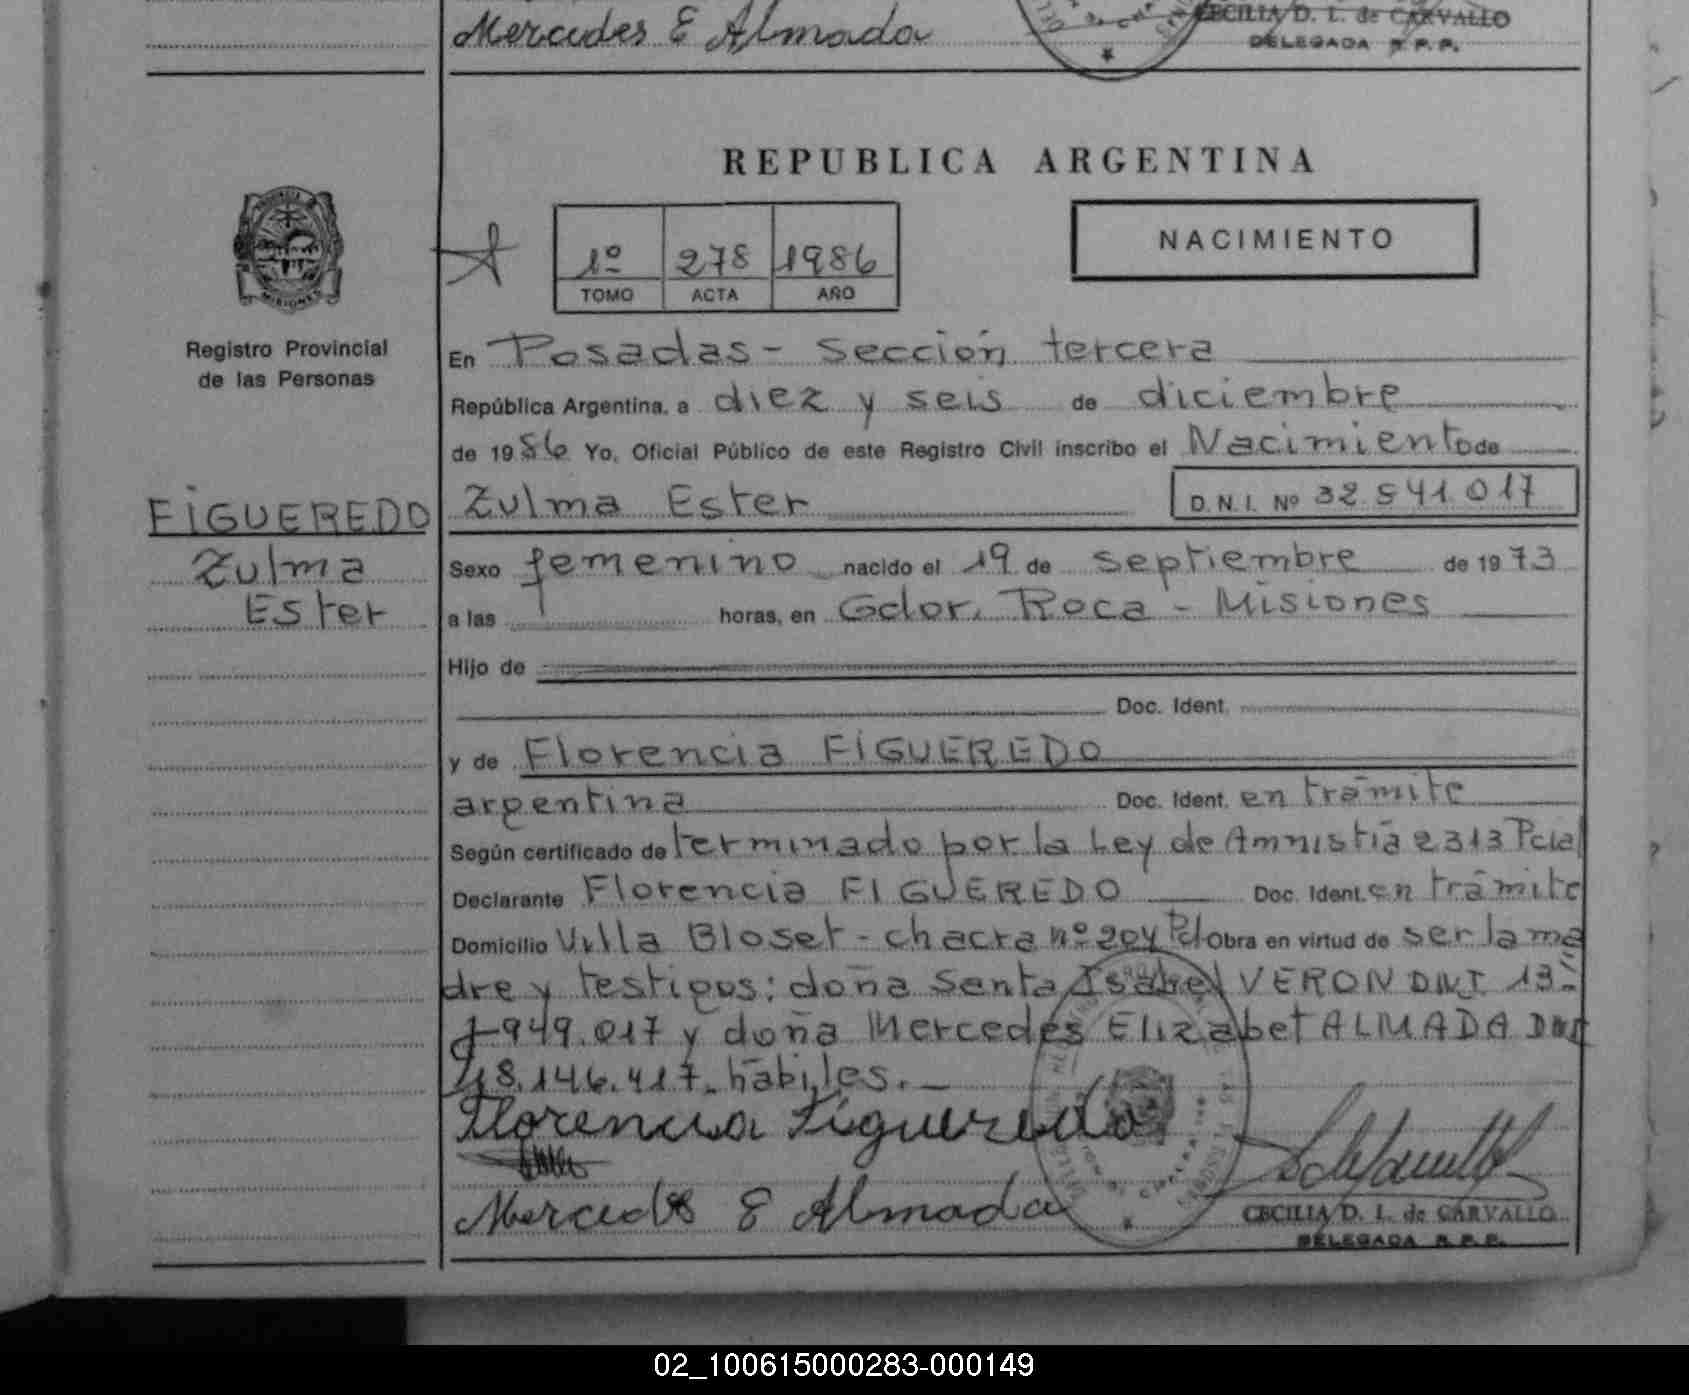 Mercedes E Almada
CECILIA D. L. de CARVALLO
DELEGADA R. P. P.
REPUBLICA ARGENTINA
MISIONES
Registro Provincial
de las Personas
1º 278 1986
TOMO ACTA AÑO
NACIMIENTO
En Posadas - Sección tercera
República Argentina, a diez y seis de diciembre
de 1986 Yo, Oficial Público de este Registro Civil inscribo el Nacimiento de
Zulma Ester D.N.I. Nº 32.541.017
FIGUEREDO
Zulma
Ester
Sexo femenino nacido el 19 de septiembre de 1973
a las horas, en Gdor. Roca - Misiones
Hijo de
Doc. Ident.
y de Florencia FIGUEREDO
argentina Doc. Ident. en trámite
Según certificado de terminado por la Ley de Amnistía 2313 Pcial
Declarante Florencia FIGUEREDO Doc. Ident. en trámite
Domicilio Villa Bloset - chacra nº 204 Pd Obra en virtud de ser la ma
dre y testigos: doña Santa Isabel VERON DNI 13.-
949.017 y doña Mercedes Elizabet ALMADA DNI
18.146.417. hábiles.-
Florencia Figueredo
Mercedes E Almada
CECILIA D. L. de CARVALLO
DELEGADA R. P. P.
02_100615000283-000149